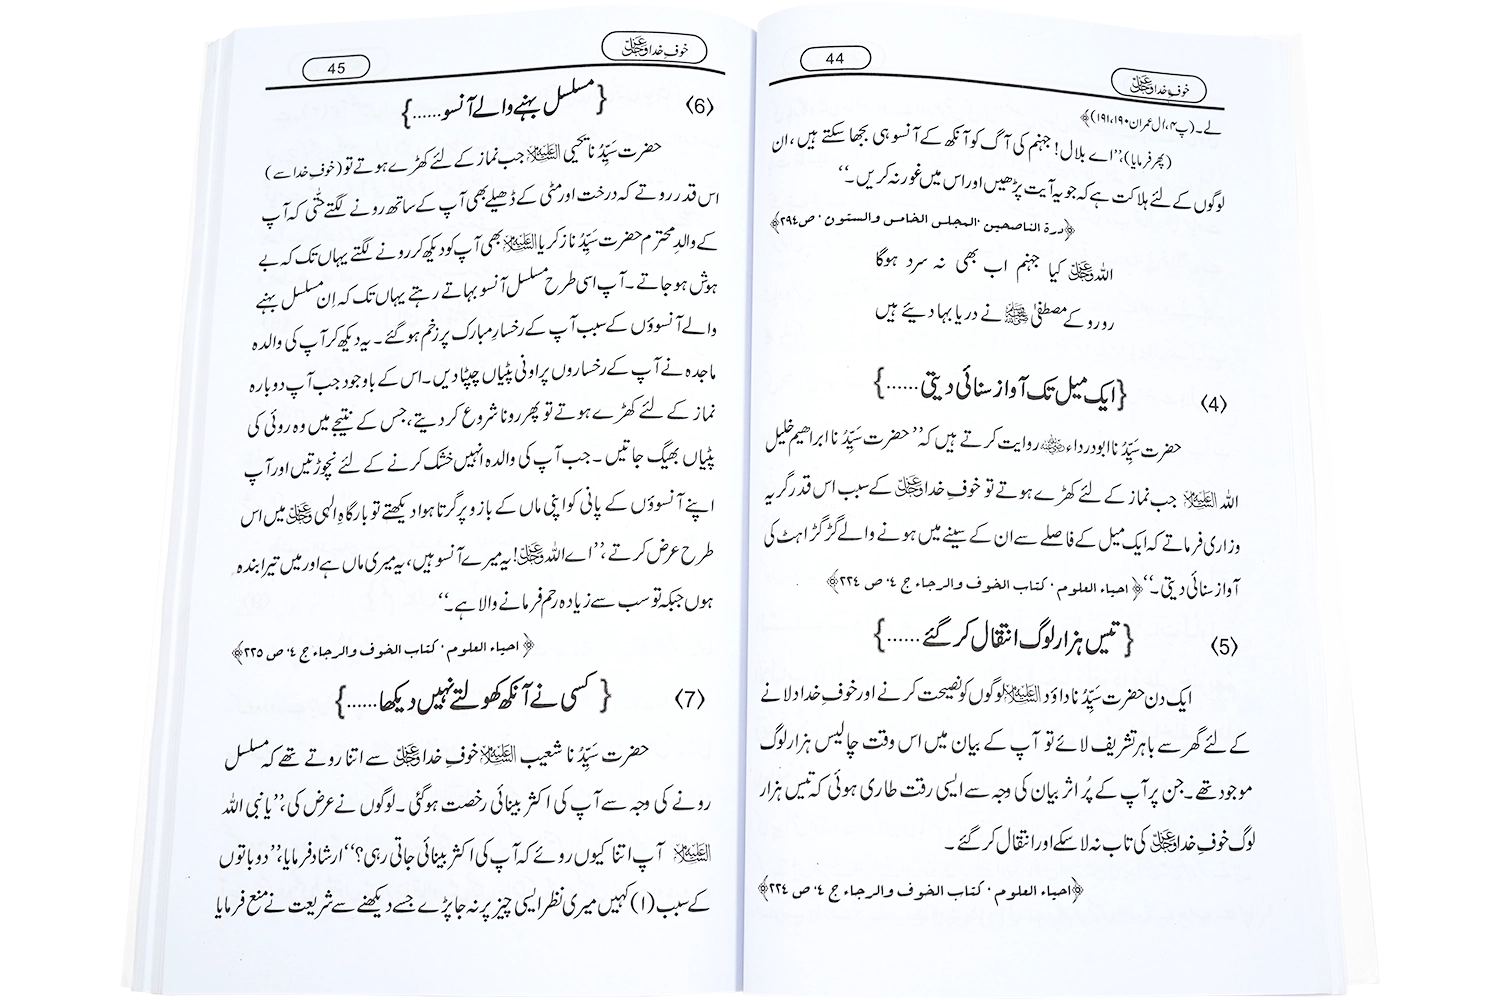 44
خوفِ خدا عزوجل
لے۔(پ۴،ال عمران۱۹۰،۱۹۱)﴾
(پھر فرمایا)،’’اے بلال! جہنم کی آگ کو آنکھ کے آنسو ہی بجھا سکتے ہیں، ان
لوگوں کے لئے ہلاکت ہے کہ جو یہ آیت پڑھیں اور اس میں غور نہ کریں۔‘‘
﴿درة الناصحین ٬المجلس الخامس والستون ٬ ص۲۹٤﴾
اللہ عزوجل کیا جہنم اب بھی نہ سرد ہوگا
رو رو کے مصطفیٰ ﷺ نے دریا بہا دیئے ہیں
(4) {ایک میل تک آواز سنائی دیتی......}
حضرت سَیِّدُنا ابودرداء رضی اللہ عنہ روایت کرتے ہیں کہ’’حضرت سَیِّدُنا ابراھیم خلیل
اللہ علیہ السلام جب نماز کے لئے کھڑے ہوتے تو خوفِ خدا عزوجل کے سبب اس قدر گریہ
وزاری فرماتے کہ ایک میل کے فاصلے سے ان کے سینے میں ہونے والے گڑگڑاہٹ کی
آواز سنائی دیتی۔‘‘﴿احیاء العلوم ٬ کتاب الخوف والرجاء ج ٤٬ ص ۲۲٤﴾
(5) {تیس ہزار لوگ انتقال کر گئے......}
ایک دن حضرت سَیِّدُنا داؤد علیہ السلام لوگوں کو نصیحت کرنے اور خوفِ خدا دلانے
کے لئے گھر سے باہر تشریف لائے تو آپ کے بیان میں اس وقت چالیس ہزار لوگ
موجود تھے۔جن پر آپ کے پُر اثر بیان کی وجہ سے ایسی رقت طاری ہوئی کہ تیس ہزار
لوگ خوفِ خدا عزوجل کی تاب نہ لا سکے اور انتقال کر گئے۔
﴿احیاء العلوم ٬ کتاب الخوف والرجاء ج ٤٬ ص ۲۲٤﴾
خوفِ خدا عزوجل
45
(6) {مسلسل بہنے والے آنسو......}
حضرت سَیِّدُنا یحیی علیہ السلام جب نماز کے لئے کھڑے ہوتے تو (خوفِ خدا سے)
اس قدر روتے کہ درخت اور مٹی کے ڈھیلے بھی آپ کے ساتھ رونے لگتے حتّٰی کہ آپ
کے والدِ محترم حضرت سَیِّدُنا زکریا علیہ السلام بھی آپ کو دیکھ کر رونے لگتے یہاں تک کہ بے
ہوش ہو جاتے۔آپ اسی طرح مسلسل آنسو بہاتے رہتے یہاں تک کہ اِن مسلسل بہنے
والے آنسوؤں کے سبب آپ کے رخسارِ مبارک پر زخم ہو گئے۔یہ دیکھ کر آپ کی والدہ
ماجدہ نے آپ کے رخساروں پر اونی پٹیاں چپٹا دیں۔اس کے باوجود جب آپ دوبارہ
نماز کے لئے کھڑے ہوتے تو پھر رونا شروع کر دیتے،جس کے نتیجے میں وہ روئی کی
پٹیاں بھیگ جاتیں۔جب آپ کی والدہ انہیں خشک کرنے کے لئے نچوڑتیں اور آپ
اپنے آنسوؤں کے پانی کو اپنی ماں کے بازو پر گرتا ہوا دیکھتے تو بارگاہِ الہی عزوجل میں اس
طرح عرض کرتے،’’اے اللہ عزوجل! یہ میرے آنسو ہیں، یہ میری ماں ہے اور میں تیرا بندہ
ہوں جبکہ تو سب سے زیادہ رحم فرمانے والا ہے۔‘‘
﴿احیاء العلوم ٬ کتاب الخوف والرجاء ج ٤٬ ص ۲۲۵﴾
(7) {کسی نے آنکھ کھولتے نہیں دیکھا......}
حضرت سَیِّدُنا شعیب علیہ السلام خوفِ خدا عزوجل سے اتنا روتے تھے کہ مسلسل
رونے کی وجہ سے آپ کی اکثر بینائی رخصت ہوگئی۔لوگوں نے عرض کی،’’یا نبی اللہ
علیہ السلام آپ اتنا کیوں روئے کہ آپ کی اکثر بینائی جاتی رہی؟‘‘ارشاد فرمایا،’’دو باتوں
کے سبب (۱) کہیں میری نظر ایسی چیز پر نہ جا پڑے جسے دیکھنے سے شریعت نے منع فرمایا